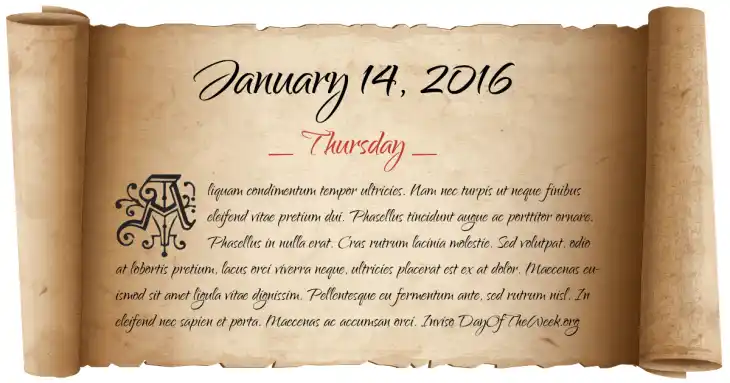 January 14, 2016
_ Thursday _
Aliquam condimentum tempor ultricies. Nam nec turpis ut neque finibus
eleifend vitae pretium dui. Phasellus tincidunt augue ac porttitor ornare.
Phasellus in nulla erat. Cras rutrum lacinia molestie. Sed volutpat, odio
at lobortis pretium, lacus orci viverra neque, ultricies placerat est ex at dolor. Maecenas eu-
ismod sit amet ligula vitae dignissim. Pellentesque eu fermentum ante, sed rutrum nisl. In
eleifend nec sapien et porta. Maecenas ac accumsan orci. Inviso DayOfTheWeek.org